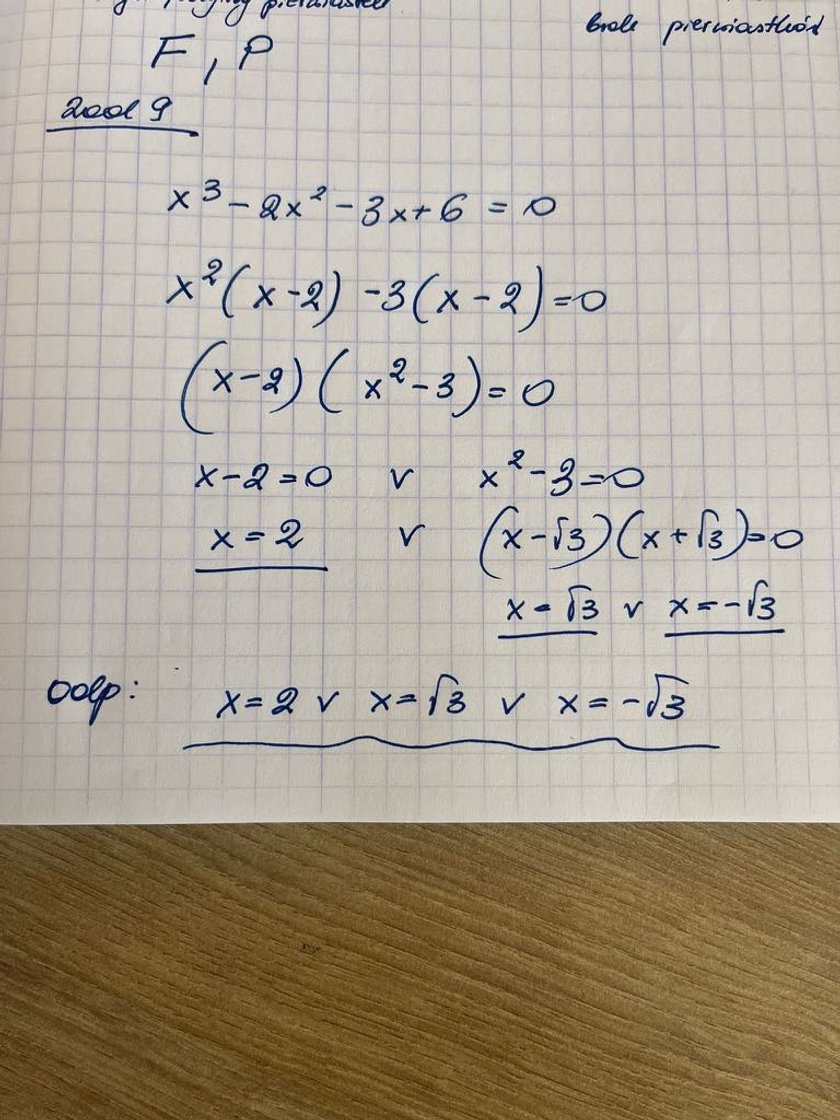 brak pierwiastków
F, P
Zad 9
x³ - 2x² - 3x + 6 = 0
x²(x-2) -3(x-2) = 0
(x-2)(x²-3) = 0
x-2=0 v x²-3=0
x=2 v (x-√3)(x+√3)=0
x=√3 v x=-√3
Odp: x=2 v x=√3 v x=-√3